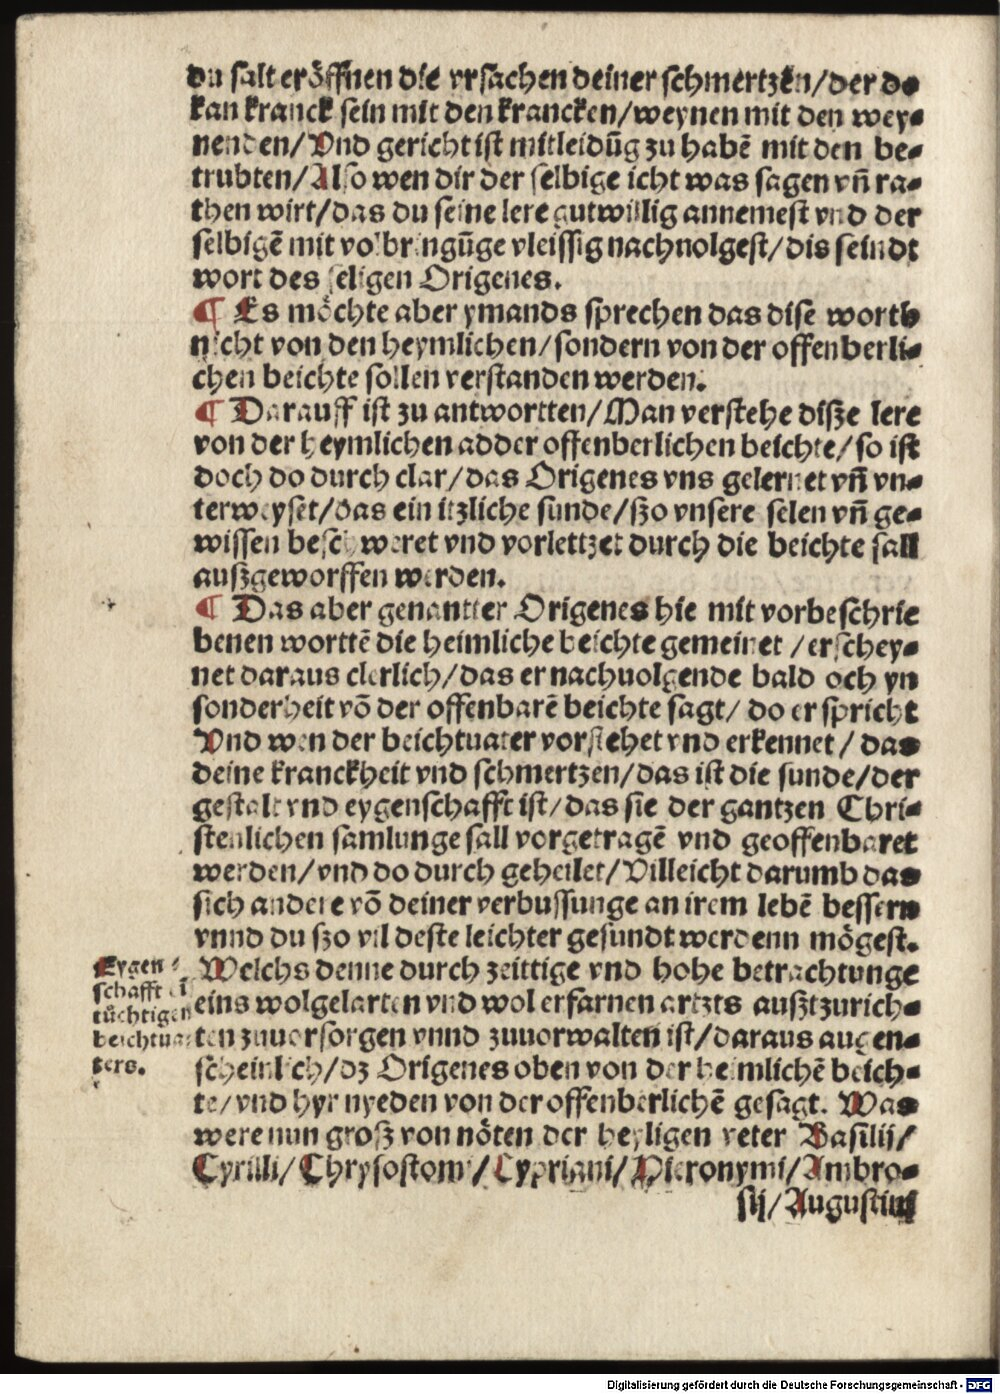 du salt eröffnen die vrsachen deiner schmertzen/der do
kan kranck sein mit den krancken/weynen mit den wey⸗
nenden/Vnd gericht ist mitleidũg zu habē mit den be⸗
trubten/Also wen dir der selbige icht was sagen vñ ra⸗
then wirt/das du seine lere gutwillig annemest vnd der
selbigē mit volbringũge vleissig nachuolgest/dis seindt
wort des seligen Origenes.
¶ Es möchte aber ymands sprechen das dise worth
nicht von den heymlichen/sondern von der offenberli⸗
chen beichte sollen verstanden werden.
¶ Darauff ist zu antwortten/Man verstehe disze lere
von der heymlichen adder offenberlichen beichte/so ist
doch do durch clar/das Origenes vns gelernet vñ vn⸗
terweyset/das ein itzliche sunde/szo vnsere selen vñ ge⸗
wissen beschweret vnd vorlettzet durch die beichte sall
auszgeworffen werden.
¶ Das aber genantter Origenes hie mit vorbeschrie
benen worttē die heimliche beichte gemeinet /erschey⸗
net daraus clerlich/das er nachuolgende bald och yn
sonderheit vō der offenbarē beichte sagt/ do er spricht
Vnd wen der beichtuater vorstehet vnd erkennet/ das
deine kranckheit vnd schmertzen/das ist die sunde/der
gestalt vnd eygenschafft ist/das sie der gantzen Chri⸗
stenlichen samlunge sall vorgetragē vnd geoffenbaret
werden/vnd do durch geheilet/Villeicht darumb das
sich andere vō deiner verbussunge an irem lebē bessern
vnnd du szo vil deste leichter gesundt werdenn mögest.
Welchs denne durch zeittige vnd hohe betrachtunge
eins wolgelarten vnd wol erfarnen artzts auszt zurich⸗
ten zuuorsorgen vnnd zuuorwalten ist/daraus augen⸗
scheinlich/dz Origenes oben von der heimlichē beich⸗
te/vnd hyr nyeden von der offenberlichē gesagt. Was
were nun grosz von nöten der heyligen veter Basilij/
Cyrilli/Chrysostomi/Cypriani/Hieronymi/Ambro⸗
sij/Augustini
Eygen⸗
schafft eī
tüchtigen
beichtua⸗
ters.
Digitalisierung gefördert durch die Deutsche Forschungsgemeinschaft - DFG